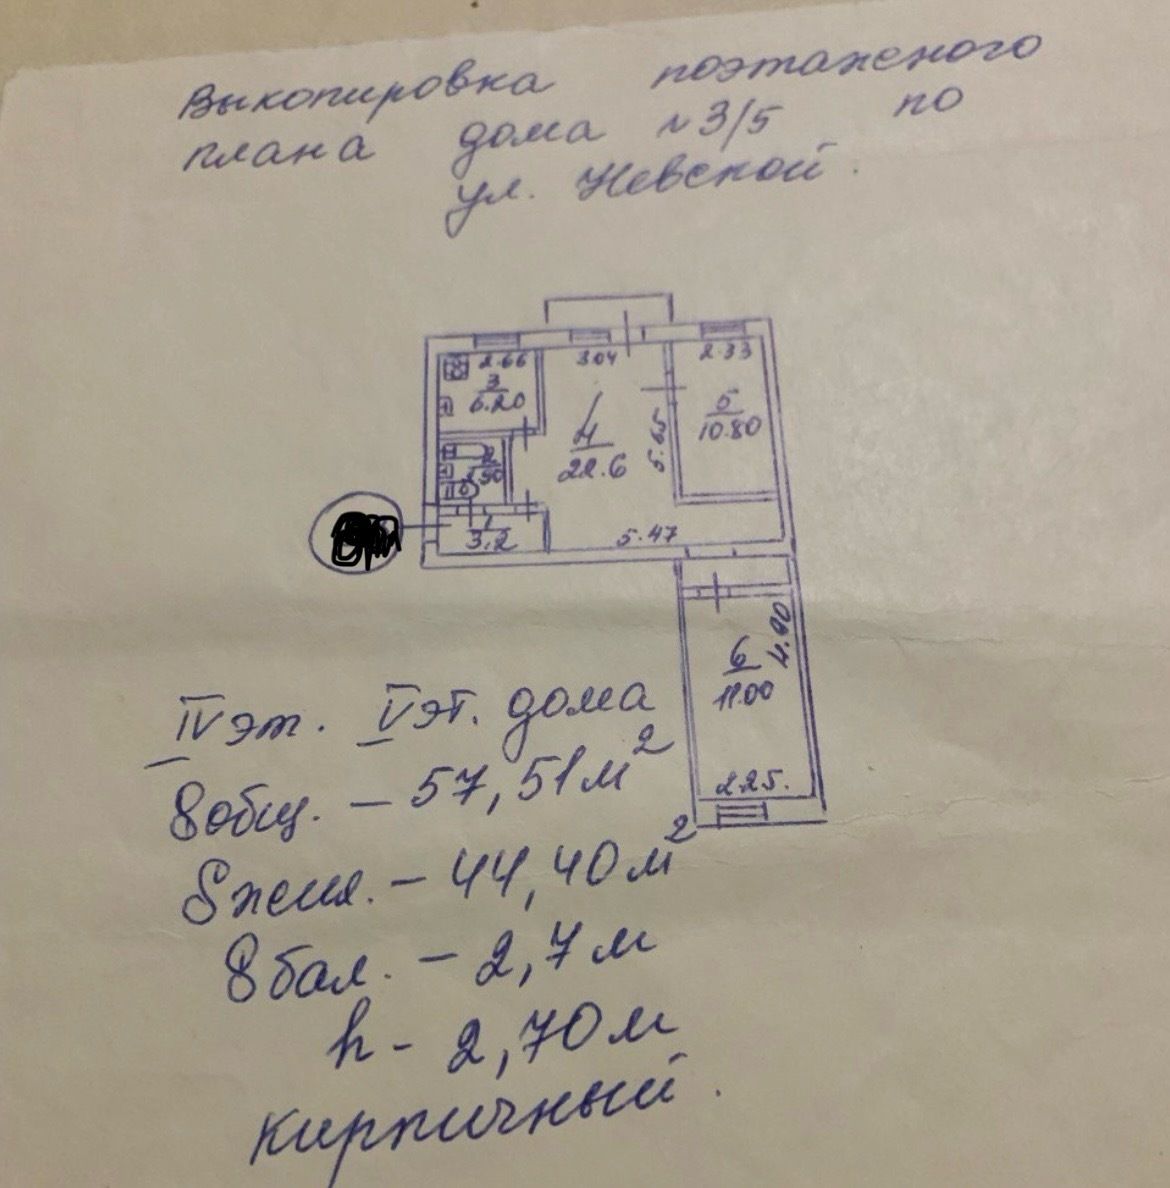 Выкопировка поэтажного
плана дома №3/5 по
ул. Невской.
2.66 3.04 2.33
3
6.20
4
22.6
5.65
5
10.80
2
1
3.2
5.47
6
11.00
4.90
2.25.
IV эт. V эт. дома
Sобщ. – 57,51 м²
Sжил. – 44,40 м²
Sбал. – 2,7 м
h - 2,70 м
кирпичный.